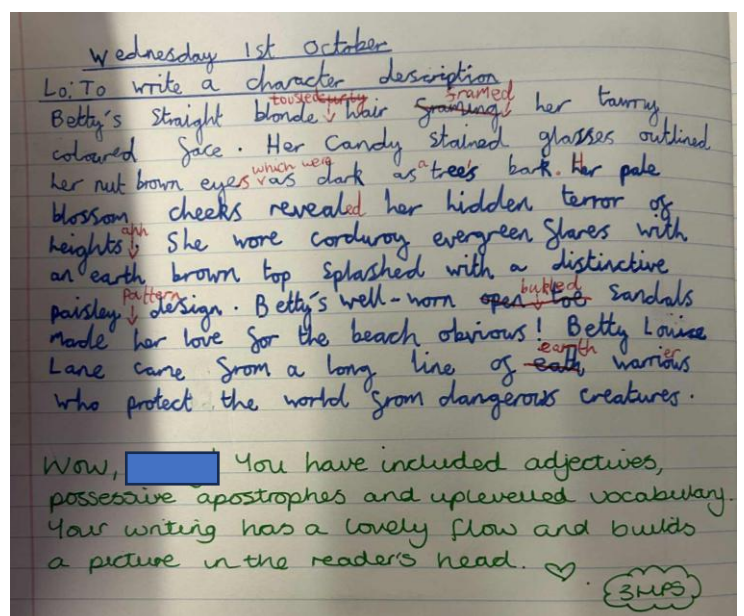 Wednesday 1st October
Lo: To write a character description
tousled curly framed
Betty's straight blonde hair framing her tawny
coloured face. Her Candy stained glasses outlined
which were a
her nut brown eyes as dark as tree's bark. Her pale
blossom cheeks revealed her hidden terror of
heights. She wore corduroy evergreen flares with
an earth brown top splashed with a distinctive
pattern buckled
paisley design. Betty's well-worn open toe sandals
made her love for the beach obvious! Betty Louise
earth er
Lane came from a long line of warriors
who protect the world from dangerous creatures.
Wow, You have included adjectives,
possessive apostrophes and uplevelled vocabulary.
Your writing has a lovely flow and builds
a picture in the reader's head.
3HPS